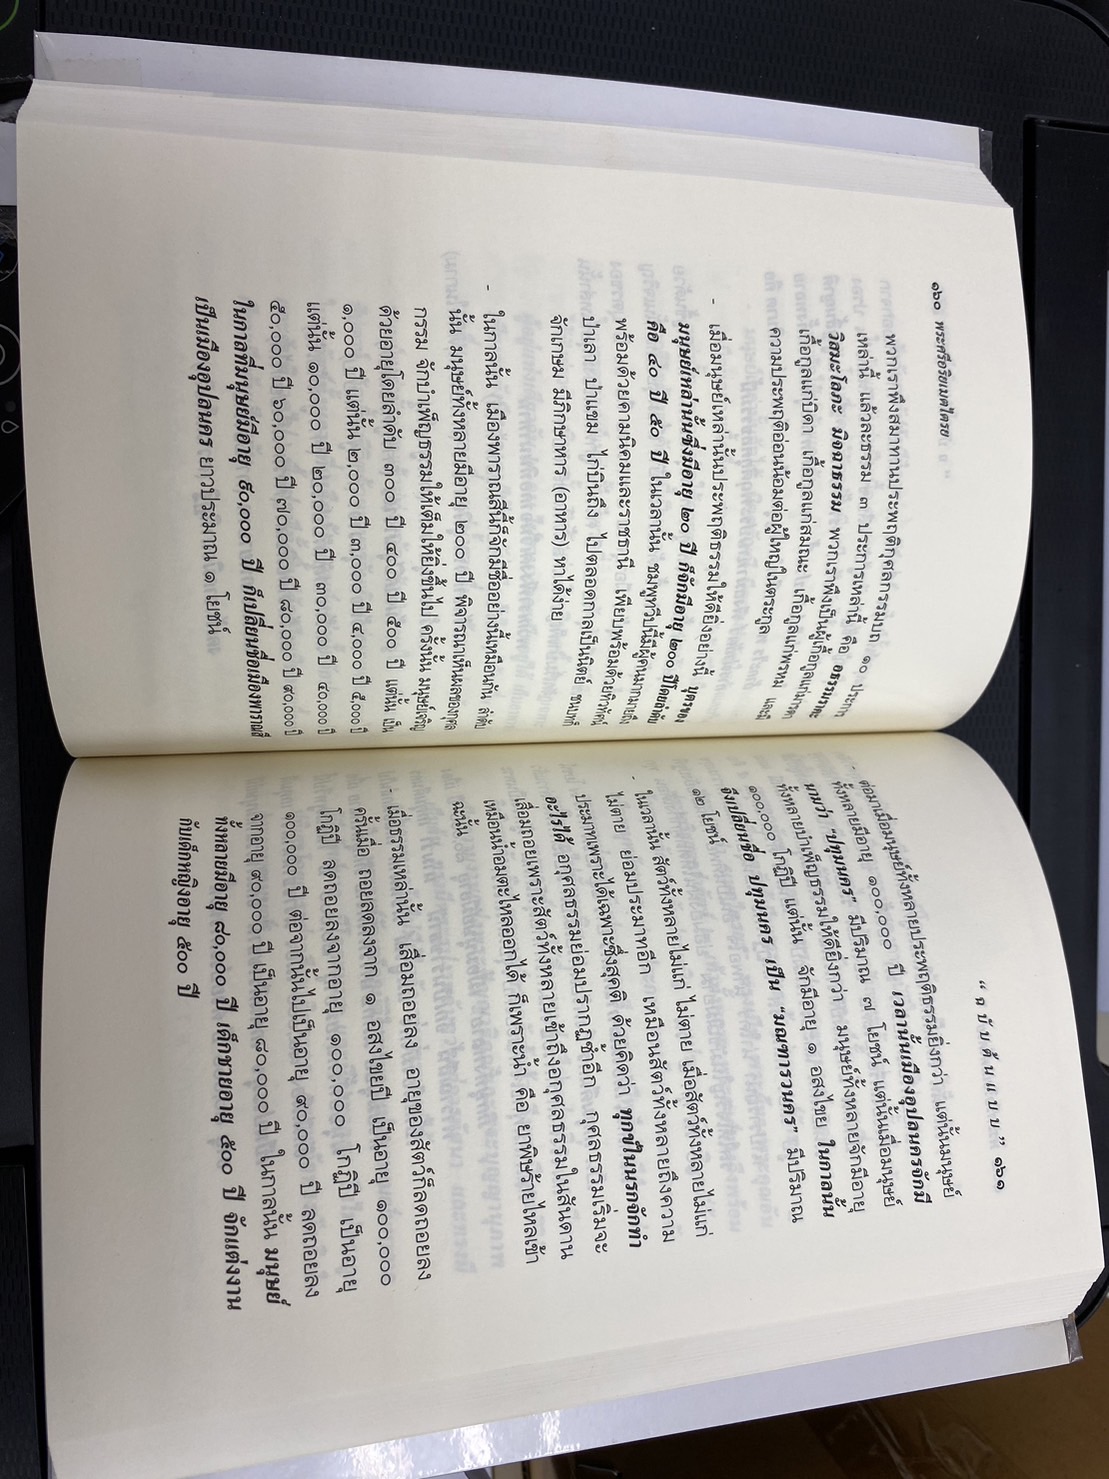 ๑๖๐ พระศรีอริยเมตไตรย
พวกเราพึงสมาทานประพฤติกุศลกรรมบถ ๑๐ ประการ
เหล่านี้ แล้วละธรรม ๓ ประการเหล่านี้ คือ อธรรมราคะ
วิสมะโลภะ มิจฉาธรรม พวกเราพึงเป็นผู้เกื้อกูลแก่มารดา
เกื้อกูลแก่บิดา เกื้อกูลแก่สมณะ เกื้อกูลแก่พรหม และมี
ความประพฤติอ่อนน้อมต่อผู้ใหญ่ในตระกูล
- เมื่อมนุษย์เหล่านั้นประพฤติธรรมให้ดียิ่งอย่างนี้ บุตรของ
มนุษย์เหล่านั้นซึ่งมีอายุ ๒๐ ปี ก็จักมีอายุ ๒๐๐ ปีโดยลำดับ
คือ ๔๐ ปี ๕๐ ปี ในเวลานั้น ชมพูทวีปนี้มีผู้คนมากมายถึง
พร้อมด้วยคามนิคมและราชธานี เพียบพร้อมด้วยทิวทัศน์
ป่าเลา ป่าแขม ไก่บินถึง ไปตลอดกาลเป็นนิตย์ ชนบทก็
จักเกษม มีภิกษาหาร (อาหาร) หาได้ง่าย
- ในกาลนั้น เมืองพาราณสีนี้ก็จักมีชื่ออย่างนี้เหมือนกัน ลำดับ
นั้น มนุษย์ทั้งหลายมีอายุ ๒๐๐ ปี พิจารณาเห็นผลของกุศล
กรรม จักบำเพ็ญธรรมให้เต็มให้ยิ่งขึ้นไป ครั้งนั้น มนุษย์เจริญ
ด้วยอายุโดยลำดับ ๓๐๐ ปี ๔๐๐ ปี ๕๐๐ ปี แต่นั้น เป็น
๑,๐๐๐ ปี แต่นั้น ๒,๐๐๐ ปี ๓,๐๐๐ ปี ๔,๐๐๐ ปี ๕,๐๐๐ ปี
แต่นั้น ๑๐,๐๐๐ ปี ๒๐,๐๐๐ ปี ๓๐,๐๐๐ ปี ๔๐,๐๐๐ ปี
๕๐,๐๐๐ ปี ๖๐,๐๐๐ ปี ๗๐,๐๐๐ ปี ๘๐,๐๐๐ ปี ๙๐,๐๐๐ ปี
ในกาลที่มนุษย์มีอายุ ๙๐,๐๐๐ ปี ก็เปลี่ยนชื่อเมืองพาราณสี
เป็นเมืองอุปลนคร ยาวประมาณ ๑ โยชน์
“ ฉ บั บ ต้ น แ บ บ ” ๑๖๑
- ต่อมาเมื่อมนุษย์ทั้งหลายประพฤติธรรมยิ่งกว่า แต่นั้นมนุษย์
ทั้งหลายมีอายุ ๑๐๐,๐๐๐ ปี เวลานั้นเมืองอุปลนครจักมี
นามว่า “ปทุมนคร” มีปริมาณ ๗ โยชน์ แต่นั้นเมื่อมนุษย์
ทั้งหลายบำเพ็ญธรรมให้ดียิ่งกว่า มนุษย์ทั้งหลายจักมีอายุ
๑๐๐,๐๐๐ โกฏิปี แต่นั้น จักมีอายุ ๑ อสงไขย ในกาลนั้น
จึงเปลี่ยนชื่อ ปทุมนคร เป็น “มณฑารวนคร” มีปริมาณ
๑๒ โยชน์
- ในเวลานั้น สัตว์ทั้งหลายไม่แก่ ไม่ตาย เมื่อสัตว์ทั้งหลายไม่แก่
ไม่ตาย ย่อมประมาทอีก เหมือนสัตว์ทั้งหลายถึงความ
ประมาทเพราะได้เฉพาะซึ่งสุคติ ด้วยคิดว่า ทุกข์ในนรกจักทำ
อะไรได้ อกุศลธรรมย่อมปรากฏซ้ำอีก กุศลธรรมเริ่มจะ
เสื่อมถอยเพราะสัตว์ทั้งหลายเข้าถึงอกุศลธรรมในสันดาน
เหมือนน้ำอมตะไหลออกได้ ก็เพราะน้ำ คือ ยาพิษร้ายไหลเข้า
ฉะนั้น
- เมื่อธรรมเหล่านั้น เสื่อมถอยลง อายุของสัตว์ก็ลดถอยลง
ครั้นเมื่อ ถอยลดลงจาก ๑ อสงไขยปี เป็นอายุ ๑๐๐,๐๐๐
โกฏิปี ลดถอยลงจากอายุ ๑๐๐,๐๐๐ โกฏิปี เป็นอายุ
๑๐๐,๐๐๐ ปี ต่อจากนั้นไปเป็นอายุ ๙๐,๐๐๐ ปี ลดถอยลง
จากอายุ ๙๐,๐๐๐ ปี เป็นอายุ ๘๐,๐๐๐ ปี ในกาลนั้น มนุษย์
ทั้งหลายมีอายุ ๘๐,๐๐๐ ปี เด็กชายอายุ ๕๐๐ ปี จักแต่งงาน
กับเด็กหญิงอายุ ๕๐๐ ปี